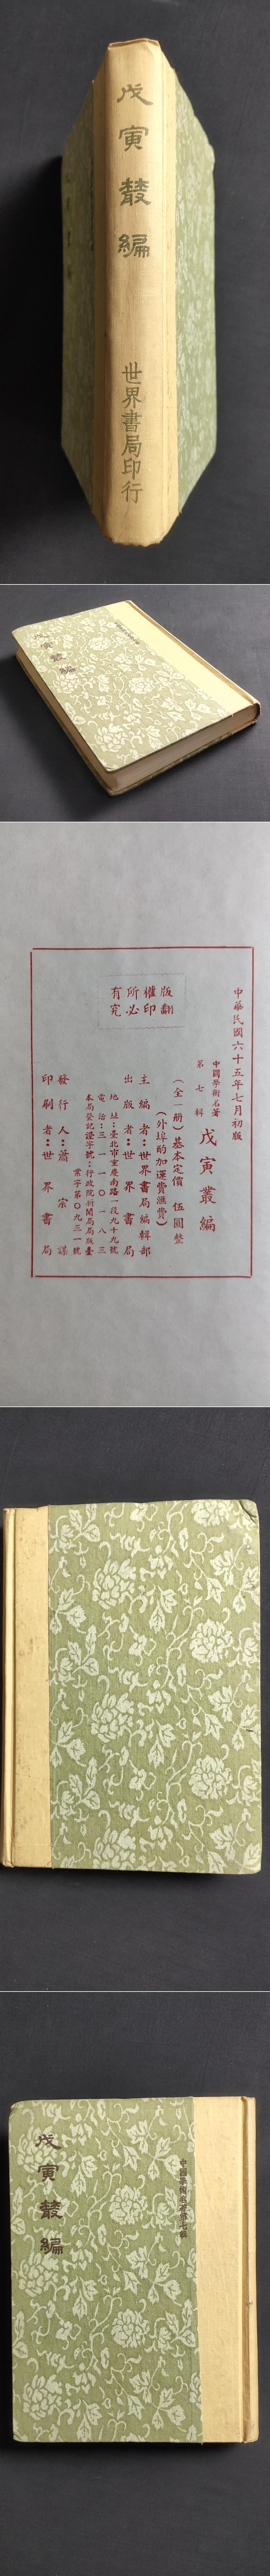 戊寅叢編
世界書局印行
戊寅叢編
中華民國六十五年七月初版
中國學術名著
第七輯
戊寅叢編
(全一册)基本定價 伍圓整
(外埠酌加運費滙費)
主編者:世界書局編輯部
出版者:世界書局
地址:臺北市重慶南路一段九十九號
電話:三一一〇一八三
本局登記證字號:行政院新聞局局版臺
業字第〇九三一號
發行人:蕭宗謀
印刷者:世界書局
版權所有
翻印必究
中國學術名著第七輯
戊寅叢編